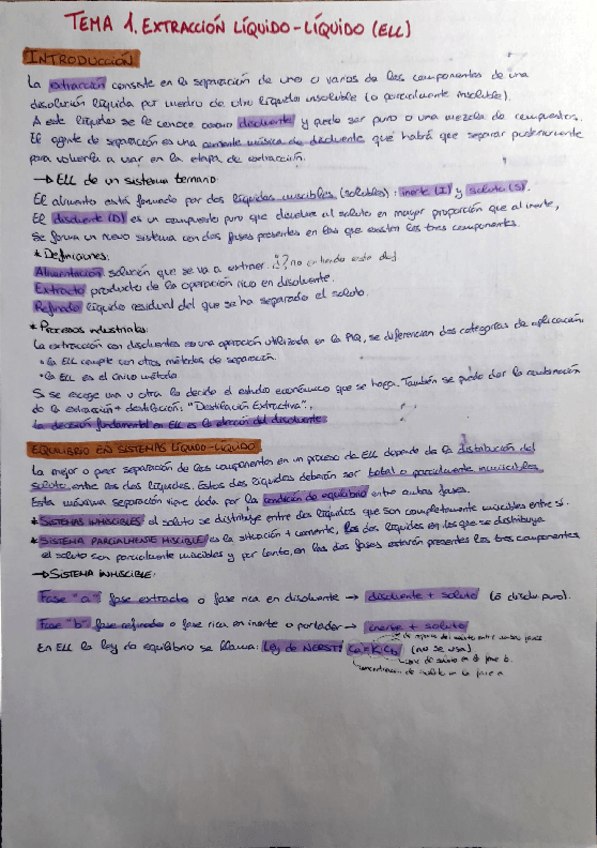 TEMA 1. EXTRACCIÓN LÍQUIDO-LÍQUIDO (ELL)
INTRODUCCIÓN
La extracción consiste en la separación de uno o varios de los componentes de una
disolución líquida por medio de otro líquido insoluble (o parcialmente insoluble).
A este líquido se le conoce como disolvente y puede ser puro o una mezcla de compuestos.
El agente de separación es una corriente másica de disolvente que habrá que separar posteriormente
para volverla a usar en la etapa de extracción.
→ ELL de un sistema ternario:
El alimento está formado por dos líquidos miscibles (solubles): inerte (I) y soluto (S).
El disolvente (D) es un compuesto puro que disuelve al soluto en mayor proporción que al inerte,
Se forma un nuevo sistema con dos fases presentes en las que existen los tres componentes.
* Definiciones:
Alimentación solución que se va a extraer. ¿? no entiendo esta def.
Extracto producto de la operación rico en disolvente.
Refinado líquido residual del que se ha separado el soluto.
* Procesos industriales:
La extracción con disolventes es una operación utilizada en la PIQ, se diferencian dos categorías de aplicación:
• la ELL compite con otros métodos de separación.
• la ELL es el único método.
Si se escoge una u otra lo decide el estudio económico que se haga. También se puede dar la combinación
de la extracción + destilación: "Destilación Extractiva".
La decisión fundamental en ELL es la elección del disolvente.
EQUILIBRIO EN SISTEMAS LÍQUIDO-LÍQUIDO
La mejor o peor separación de los componentes en un proceso de ELL depende de la distribución del
soluto entre los dos líquidos. Estos dos líquidos deberán ser total o parcialmente inmiscibles.
Esta máxima separación viene dada por la condición de equilibrio entre ambas fases.
* SISTEMAS INMISCIBLES el soluto se distribuye entre dos líquidos que son completamente miscibles entre sí.
* SISTEMA PARCIALMENTE MISCIBLE es la situación + corriente, los dos líquidos en los que se distribuye
el soluto son parcialmente miscibles y por tanto, en las dos fases estarán presentes los tres componentes.
→ SISTEMA INMISCIBLE:
Fase "a" fase extracto o fase rica en disolvente → disolvente + soluto (o disolv. puro).
Fase "b" fase refinado o fase rica en inerte o portador → inerte + soluto
de reparto del soluto entre ambas fases
En ELL la ley de equilibrio se llama: Ley de NERST: Ca=K·Cb (no se usa)
conc de soluto en la fase b.
concentración de soluto en la fase a